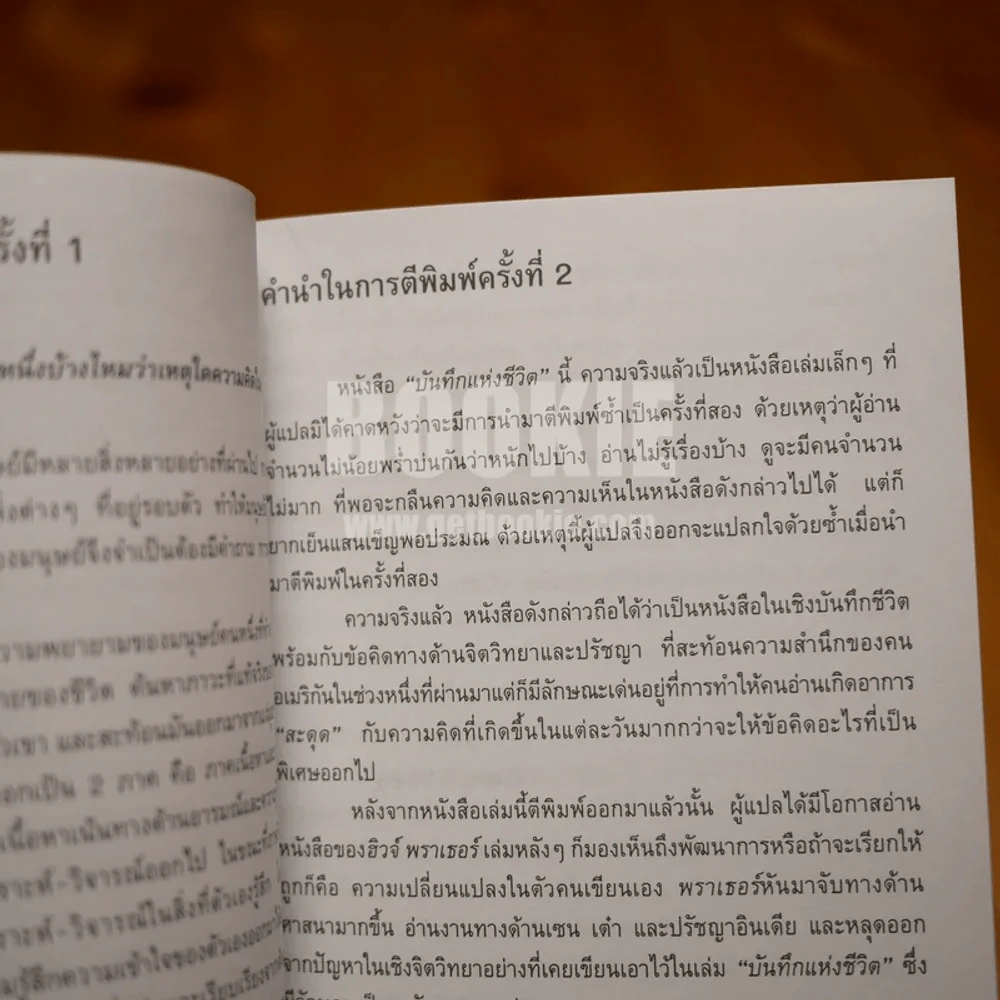 รั้งที่ 1
หนึ่งบ้างไหมว่าเหตุใดความคิด
มีหลายสิ่งหลายอย่างที่ผ่านไป
ต่างๆ ที่อยู่รอบตัว ทำให้
ของมนุษย์จึงจำเป็นต้องมีคำถาม
ความพยายามของมนุษย์คนหนึ่งที่
ของชีวิต ค้นหาภาวะที่แท้จริง
เขา และสะท้อนมันออกมาจาก
ออกเป็น 2 ภาค คือ ภาคเนื้อหา
เนื้อหาเน้นทางด้านอารมณ์และ
-วิจารณ์ออกไป ในขณะที่
-วิจารณ์ในสิ่งที่ตัวเองรู้สึก
รู้สึกความเข้าใจของตัวเองออกมา
คำนำในการตีพิมพ์ครั้งที่ 2
หนังสือ “บันทึกแห่งชีวิต” นี้ ความจริงแล้วเป็นหนังสือเล่มเล็กๆ ที่
ผู้แปลมิได้คาดหวังว่าจะมีการนำมาตีพิมพ์ซ้ำเป็นครั้งที่สอง ด้วยเหตุว่าผู้อ่าน
จำนวนไม่น้อยพร่ำบ่นกันว่าหนักไปบ้าง อ่านไม่รู้เรื่องบ้าง ดูจะมีคนจำนวน
ไม่มาก ที่พอจะกลืนความคิดและความเห็นในหนังสือดังกล่าวไปได้ แต่ก็
ยากเย็นแสนเข็ญพอประมาณ ด้วยเหตุนี้ผู้แปลจึงออกจะแปลกใจด้วยซ้ำเมื่อนำ
มาตีพิมพ์ในครั้งที่สอง
ความจริงแล้ว หนังสือดังกล่าวถือได้ว่าเป็นหนังสือในเชิงบันทึกชีวิต
พร้อมกับข้อคิดทางด้านจิตวิทยาและปรัชญา ที่สะท้อนความสำนึกของคน
อเมริกันในช่วงหนึ่งที่ผ่านมาแต่ก็มีลักษณะเด่นอยู่ที่การทำให้คนอ่านเกิดอาการ
“สะดุด” กับความคิดที่เกิดขึ้นในแต่ละวันมากกว่าจะให้ข้อคิดอะไรที่เป็น
พิเศษออกไป
หลังจากหนังสือเล่มนี้ตีพิมพ์ออกมาแล้วนั้น ผู้แปลได้มีโอกาสอ่าน
หนังสือของฮิวจ์ พราเธอร์ เล่มหลังๆ ก็มองเห็นถึงพัฒนาการหรือถ้าจะเรียกให้
ถูกก็คือ ความเปลี่ยนแปลงในตัวคนเขียนเอง พราเธอร์หันมาจับทางด้าน
ศาสนามากขึ้น อ่านงานทางด้านเซน เต๋า และปรัชญาอินเดีย และหลุดออก
จากปัญหาในเชิงจิตวิทยาอย่างที่เคยเขียนเอาไว้ในเล่ม “บันทึกแห่งชีวิต” ซึ่ง
BOOKIE
www.getbookie.com